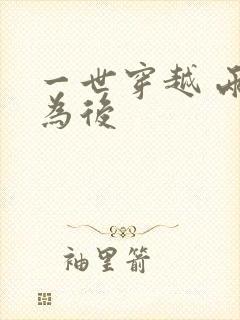 一世穿越 兩
為後
袖里箭